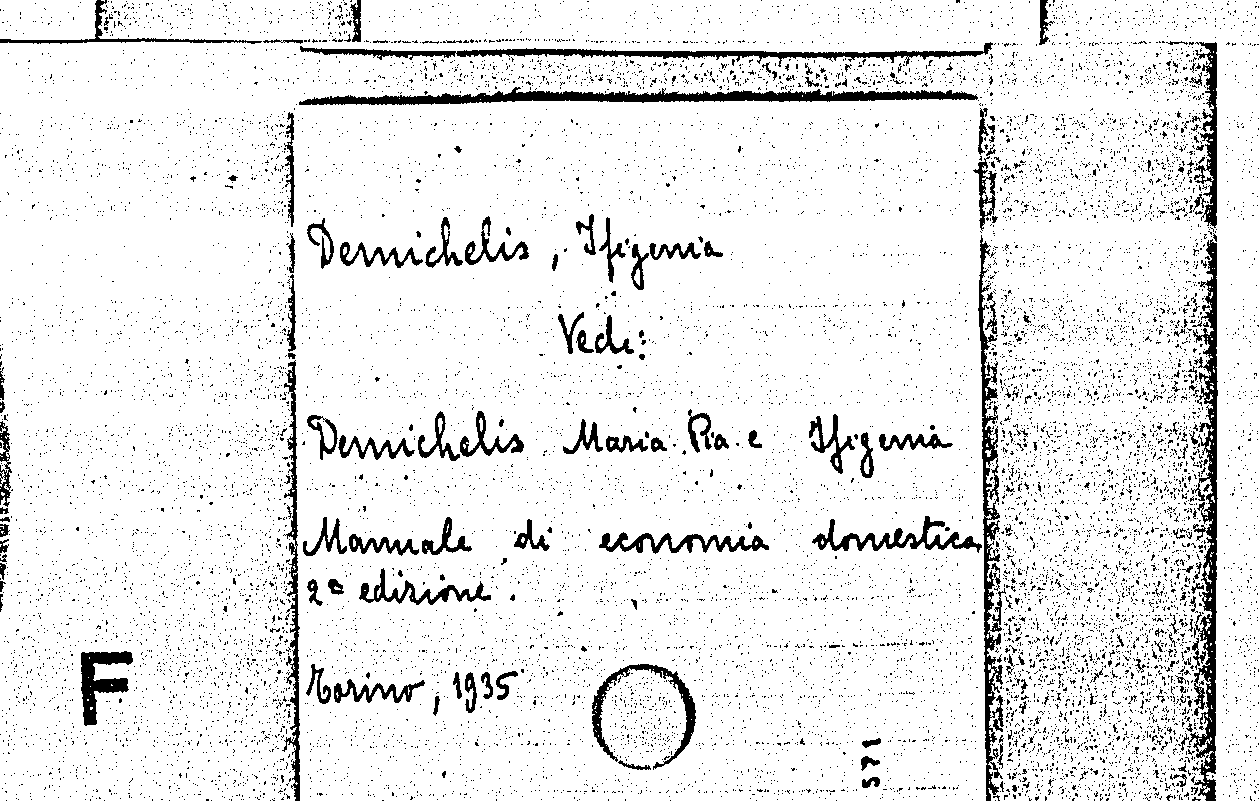 Demichelis, Ifigenia
Vedi:
Demichelis Maria Pia e Ifigenia
Manuale di economia domestica
2ª edizione.
Torino, 1935
F
571